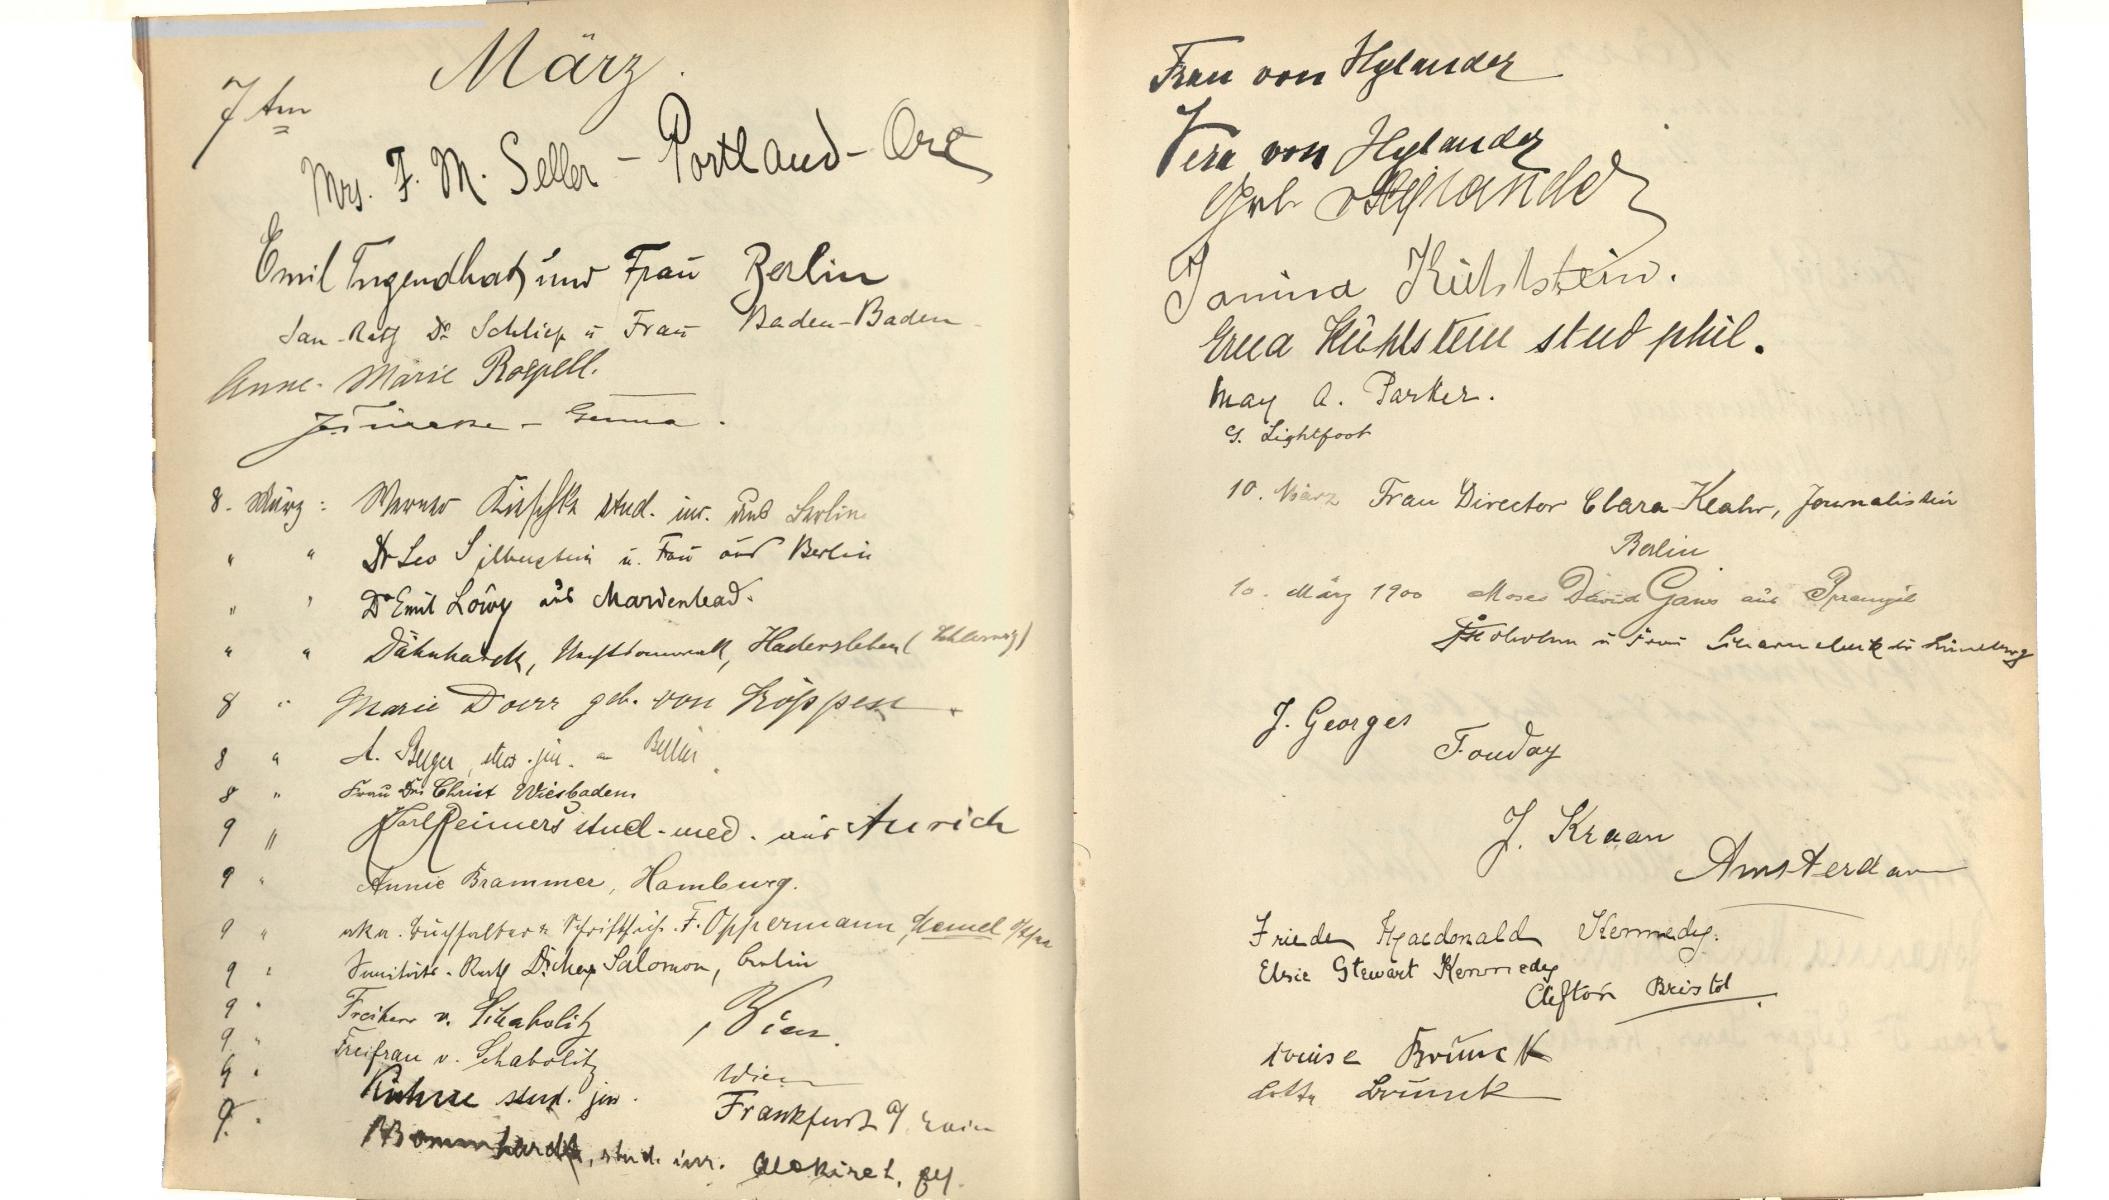 März.
7 ten
Mrs. F. M. Seller – Portland – Ore
Emil Tugendhat und Frau Berlin
San.-Rath Dr Schliep u Frau Baden-Baden
Anne-Marie Roepell.
8. März: Werner stud. jur. aus Berlin
" " Dr Leo Silberstein u. Frau aus Berlin
" " Dr Emil Löwy aus Marienbad.
" " Dähnhardt, Rechtsanwalt, Hadersleben (Schleswig)
8 " Marie Doerr geb. von Köppen
8 " A. Beyer, stud. jur. Berlin
8 " Frau Dr Christ Wiesbaden
9 " Karl Reimers stud. med. aus Aurich
9 " Annie Brammer, Hamburg.
9 " F. Oppermann, Memel
9 " Sanitäts-Rath Dr. Max Salomon, Berlin
9 " Freiherr v. Schabolitz, Wien.
9 " Freifrau v. Schabolitz Wien
9 " Kühne stud. jur. Frankfurt a/ Main
9. " Bommhardt, stud. jur.
Frau von Hylander
Vera von Hylander
v Hylander
Janina Kühlstein.
Erna Kühlstein stud phil.
May A. Parker.
G. Lightfoot
10. März Frau Director Clara Klahr, Journalistin
Berlin
10. März 1900 Moses David Gans aus
u Frau
J. Georges
Fouday
J. Kraan
Amsterdam
Frieda Macdonald Kennedy.
Elsie Stewart Kennedy
Clifton Bristol
Louise Brünck
Lotte Brünck